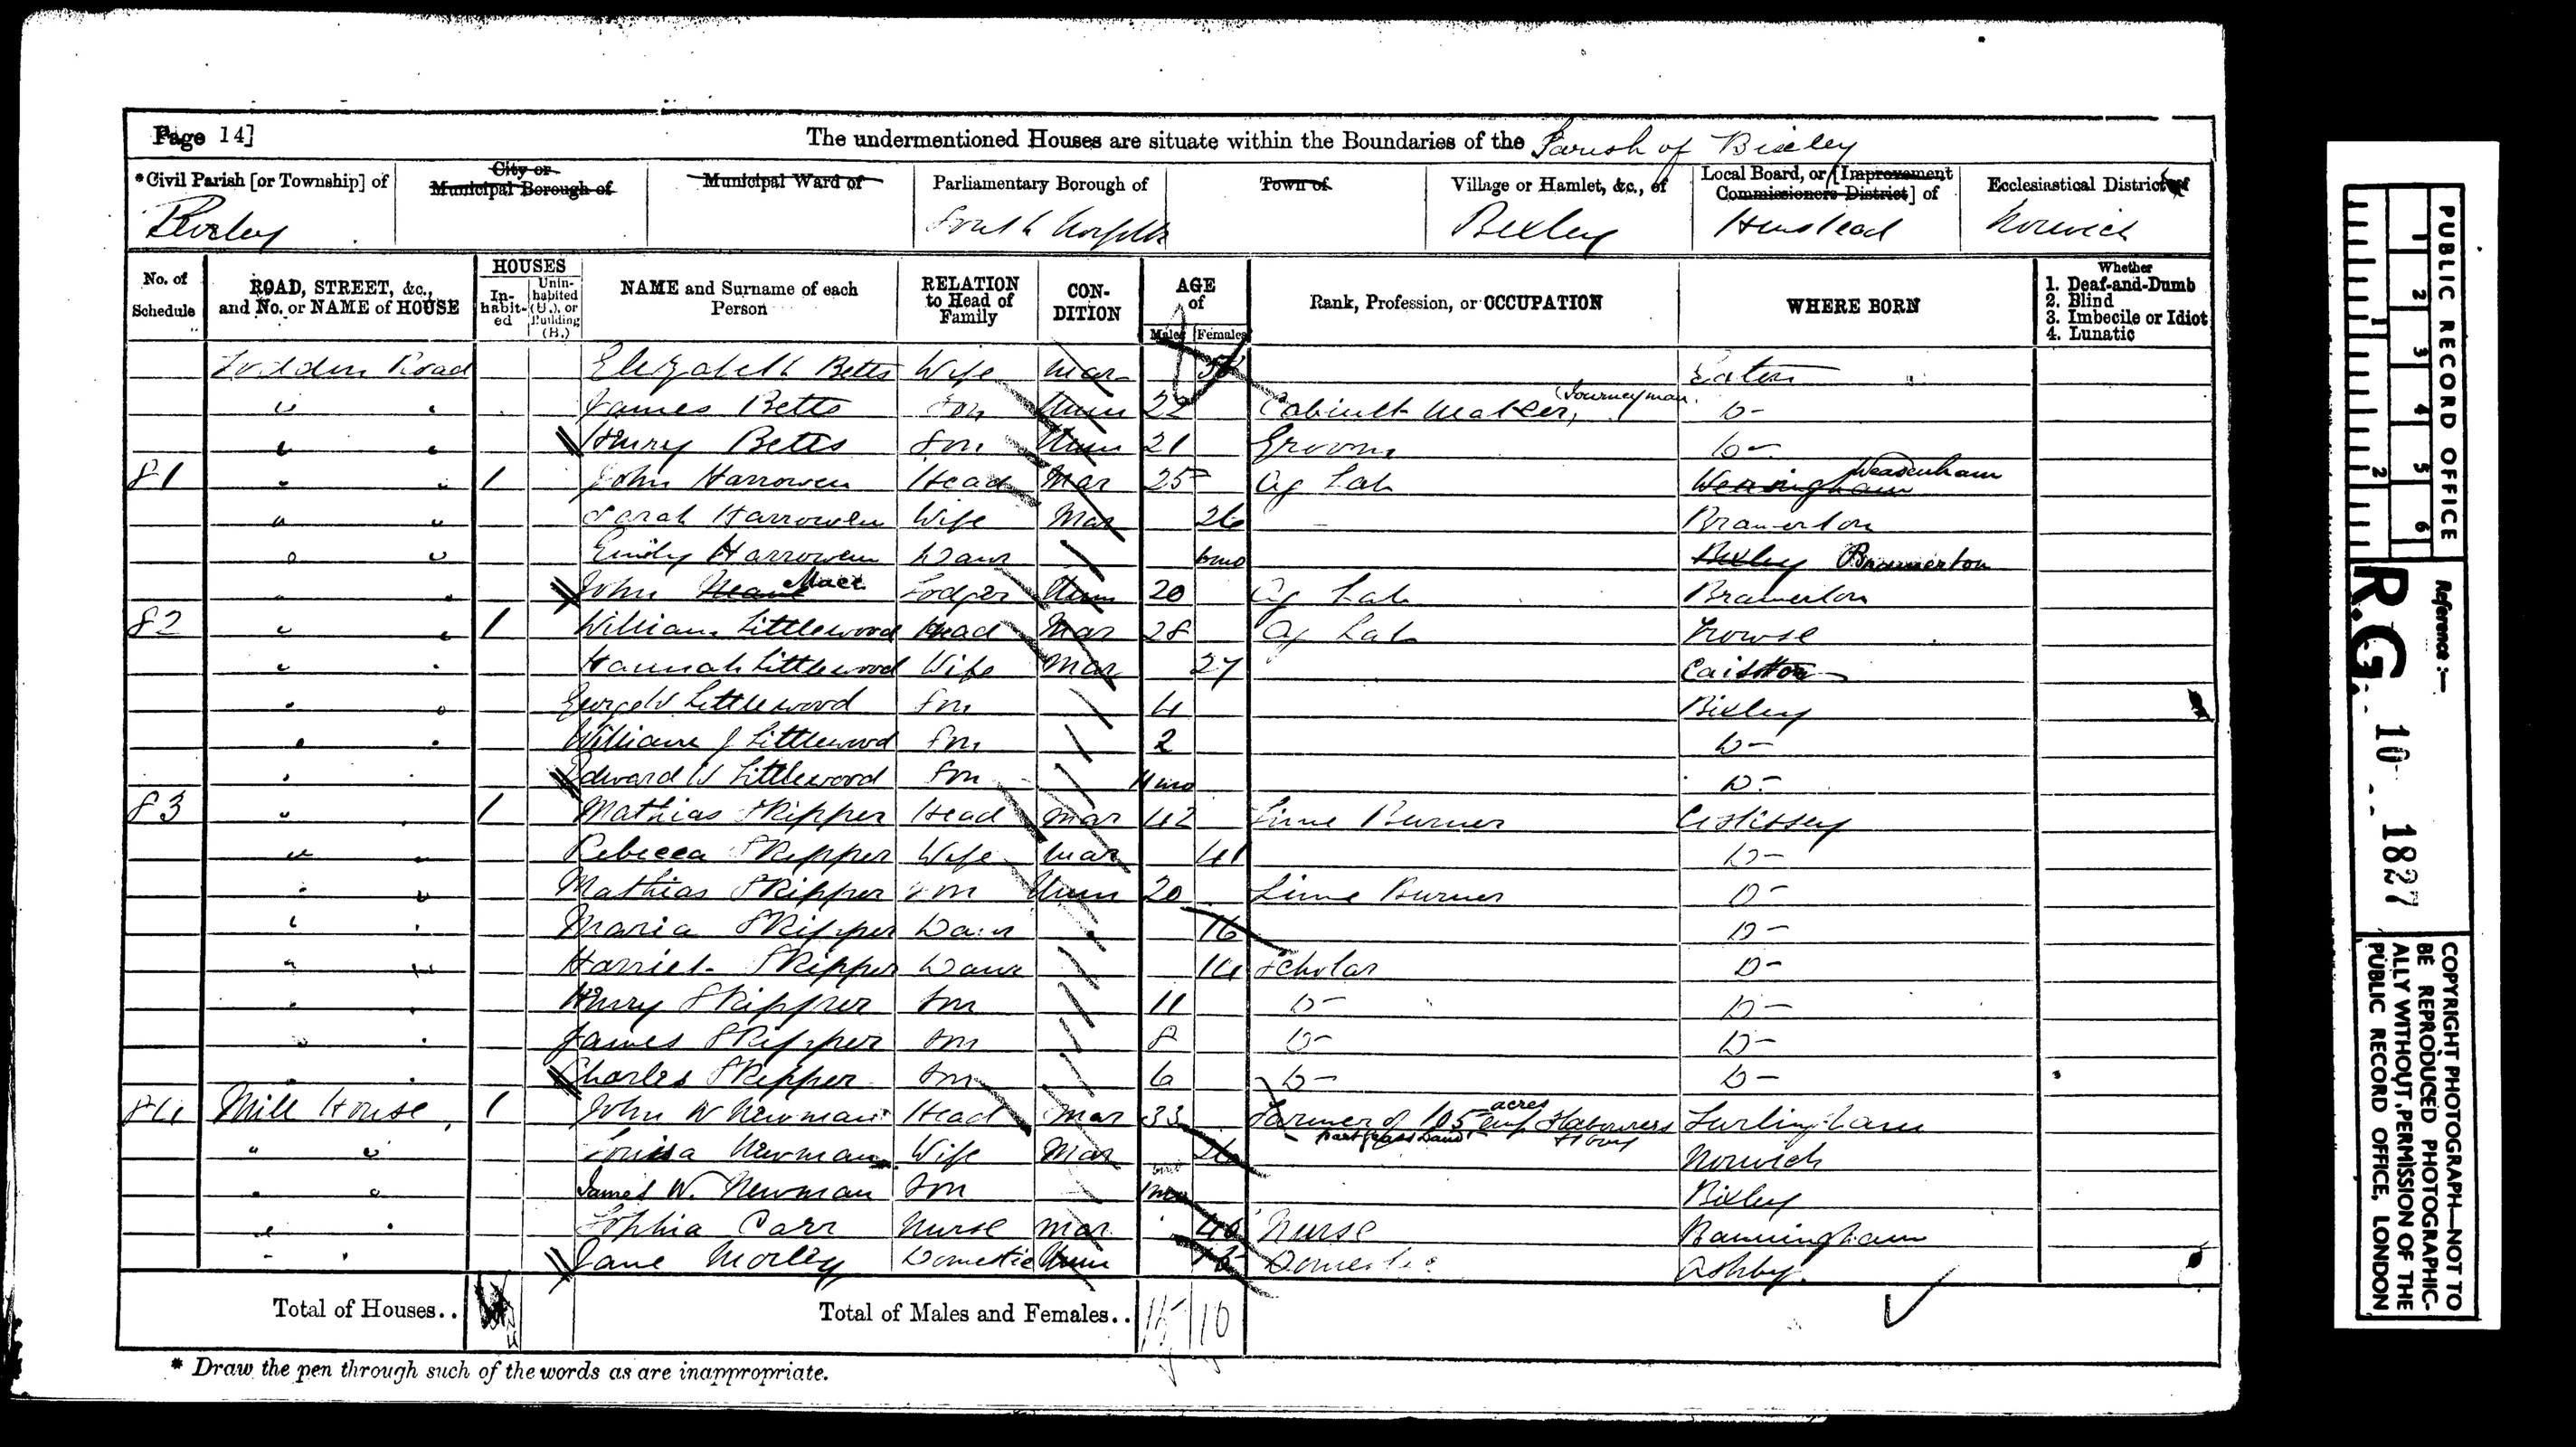 Page 14] The undermentioned Houses are situate within the Boundaries of the Parish of Bixley
*Civil Parish [or Township] of City or Municipal Borough of Municipal Ward of Parliamentary Borough of Town of Village or Hamlet, &c., of Local Board, or [Improvement Commissioners District] of Ecclesiastical District of
Bixley South Norfolk Bixley Henstead Norwich
No. of Schedule ROAD, STREET, &c., and No. or NAME of HOUSE HOUSES Inhabited Uninhabited (U.), or Building (B.) NAME and Surname of each Person RELATION to Head of Family CONDITION AGE of Males Females Rank, Profession, or OCCUPATION WHERE BORN Whether 1. Deaf-and-Dumb 2. Blind 3. Imbecile or Idiot 4. Lunatic
Loddon Road Elizabeth Betts Wife Mar Eaton
" " James Betts Son Unm 22 Cabinet Maker, (Journeyman. Do
" " Henry Betts Son Unm 21 Groom Do
81 " " 1 John Harrowen Head Mar 25 Ag Lab Weasenham
" " Sarah Harrowen Wife Mar 26 Bramerton
" " Emily Harrowen Daur 6mo Bixley Bramerton
" " John Mace Lodger Unm 20 Ag Lab Bramerton
82 " " 1 William Littlewood Head Mar 28 Ag Lab Trowse
" " Hannah Littlewood Wife Mar 27 Caistor
" " George W Littlewood Son 4 Bixley
" " William J Littlewood Son 2 Do
" " Edward W Littlewood Son 4mo Do
83 " " 1 Mathias Skipper Head Mar 42 Lime Burner Costessey
" " Rebecca Skipper Wife Mar 41 Do
" " Mathias Skipper Son Unm 20 Lime Burner Do
" " Maria Skipper Daur 16 Do
" " Harriet Skipper Daur 14 Scholar Do
" " Henry Skipper Son 11 Do Do
" " James Skipper Son 8 Do Do
" " Charles Skipper Son 6 Do Do
84 Mill House 1 John W Newman Head Mar 33 Farmer of 105 acres emp 4 labourers part grass land + 1 boy Surlingham
" " Louisa Newman Wife Mar 26 Norwich
" " James W. Newman Son Bixley
" " Sophia Carr Nurse Mar 46 Nurse Banningham
" " Jane Morley Domestic Unm Domestic Ashby
Total of Houses.. Total of Males and Females.. 15 10
* Draw the pen through such of the words as are inappropriate.
PUBLIC RECORD OFFICE
1 2 3 4 5 6
1 2
Reference :—
R.G. 10 1827
COPYRIGHT PHOTOGRAPH—NOT TO
BE REPRODUCED PHOTOGRAPHIC-
ALLY WITHOUT PERMISSION OF THE
PUBLIC RECORD OFFICE, LONDON